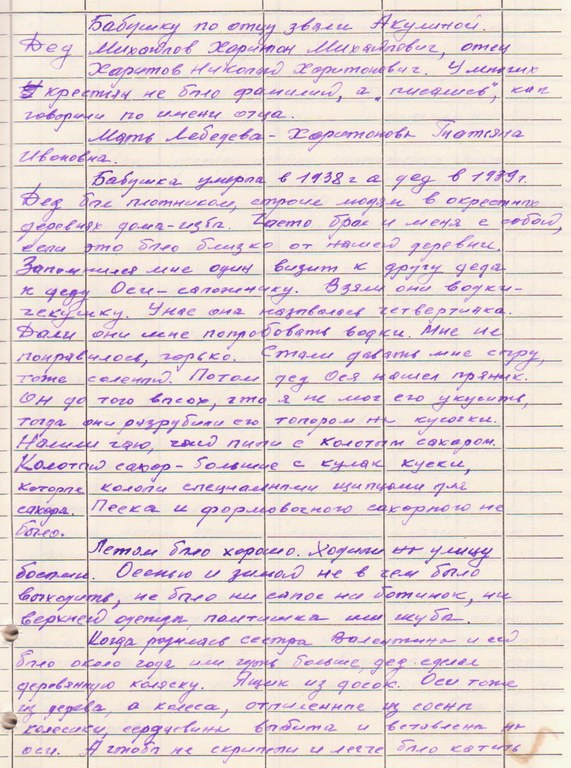 Бабушку по отцу звали Акулиной.
Дед Михайлов Харитон Михайлович, отец
Харитонов Николай Харитонович. У многих
крестьян не было фамилий, а "писались", как
говорили по имени отца.
Мать Лебедева - Харитонова Татьяна
Ивановна.
Бабушка умерла в 1938г а дед в 1939г.
Дед был плотником, строил людям в окрестных
деревнях дома-избы. Часто брал и меня с собой,
если это было близко от нашей деревни.
Запомнился мне один визит к другу деда
к деду Оси-сапожнику. Взяли они водки-
чекушку. У нас она называлась четвертинка.
Дали они мне попробовать водки. Мне не
понравилось, горько. Стали давать мне сыру,
тоже соленый. Потом дед Ося нашел пряник.
Он до того высох, что я не мог его укусить,
тогда они разрубили его топором на кусочки.
Налили чаю, чай пили с колотым сахаром.
Колотый сахар - большие с кулак куски,
которые кололи специальными щипцами для
сахара. Песка и формовочного сахарного не
было.
Летом было хорошо. Ходили на улицу
босыми. Осенью и зимой не в чем было
выходить, не было ни сапог ни ботинок, ни
верхней одежды пальтишка или шубы.
Когда родилась сестра Валентина и ей
было около года или чуть больше, дед сделал
деревянную коляску. Ящик из досок. Оси тоже
из дерева, а колеса, отпиленные из сосны
колесики, сердцевины выбиты и вставлены на
оси. А чтобы не скрипели и легче было катить